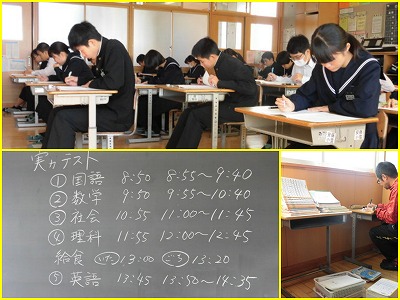 実力テスト
① 国語 8:50 8:55〜9:40
② 数学 9:50 9:55〜10:40
③ 社会 10:55 11:00〜11:45
④ 理科 11:55 12:00〜12:45
給食 いただ 13:00 ごち 13:20
⑤ 英語 13:45 13:50〜14:35